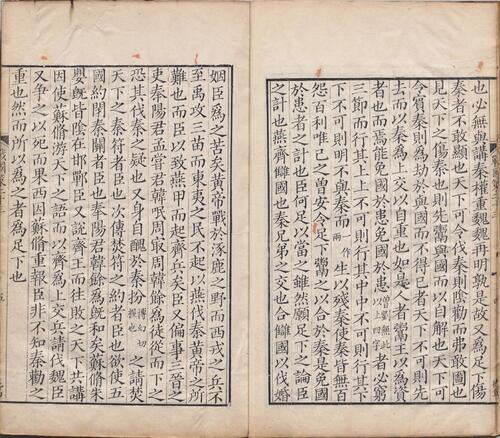 也必無與講秦權重魏魏冉明孰是故又為足下傷
秦者不敢顯也天下可令伐秦則陰勸而弗敢圖也
見天下之傷秦也則先鬻與國而以自解也天下可
令賓秦則為劫於與國而不得已者天下不可則先
去而以秦為上交以自重也如是人者鬻王以為資
者也而焉能免國於患免國於患以上四字者必窮
三節而行其上上不可則行其中中不可則行其下
下不可則明不與秦而兩作生以殘秦使秦皆無百
怨百利唯己之曾安令足下鬻之以合於秦是免國
於患者之計也臣何足以當之雖然願足下之論臣
之計也燕齊讎國也秦兄弟之交也合讎國以伐婚
姻臣為之苦矣黃帝戰於涿鹿之野而西戎之兵不
至禹攻三苗而東夷之民不起以燕伐秦黃帝之所
難也而臣以致燕甲而起齊兵矣臣又偏事三晉之
吏奉陽君孟嘗君韓呡周㝡周韓餘為徒從而下之
恐其伐秦之疑也又身自醜於秦扮之請焚
天下之秦符者臣也次傳焚符之約者臣也欲使五
國約閉秦關者臣也奉陽君韓餘為既和矣蘇脩朱
嬰既皆陰在邯鄲臣又說齊王而往敗之天下共講
因使蘇脩游天下之語而以齊為上交兵請伐魏臣
又爭之以死而果西因蘇脩重報臣非不知秦勸之
重也然而所以為之者為足下也